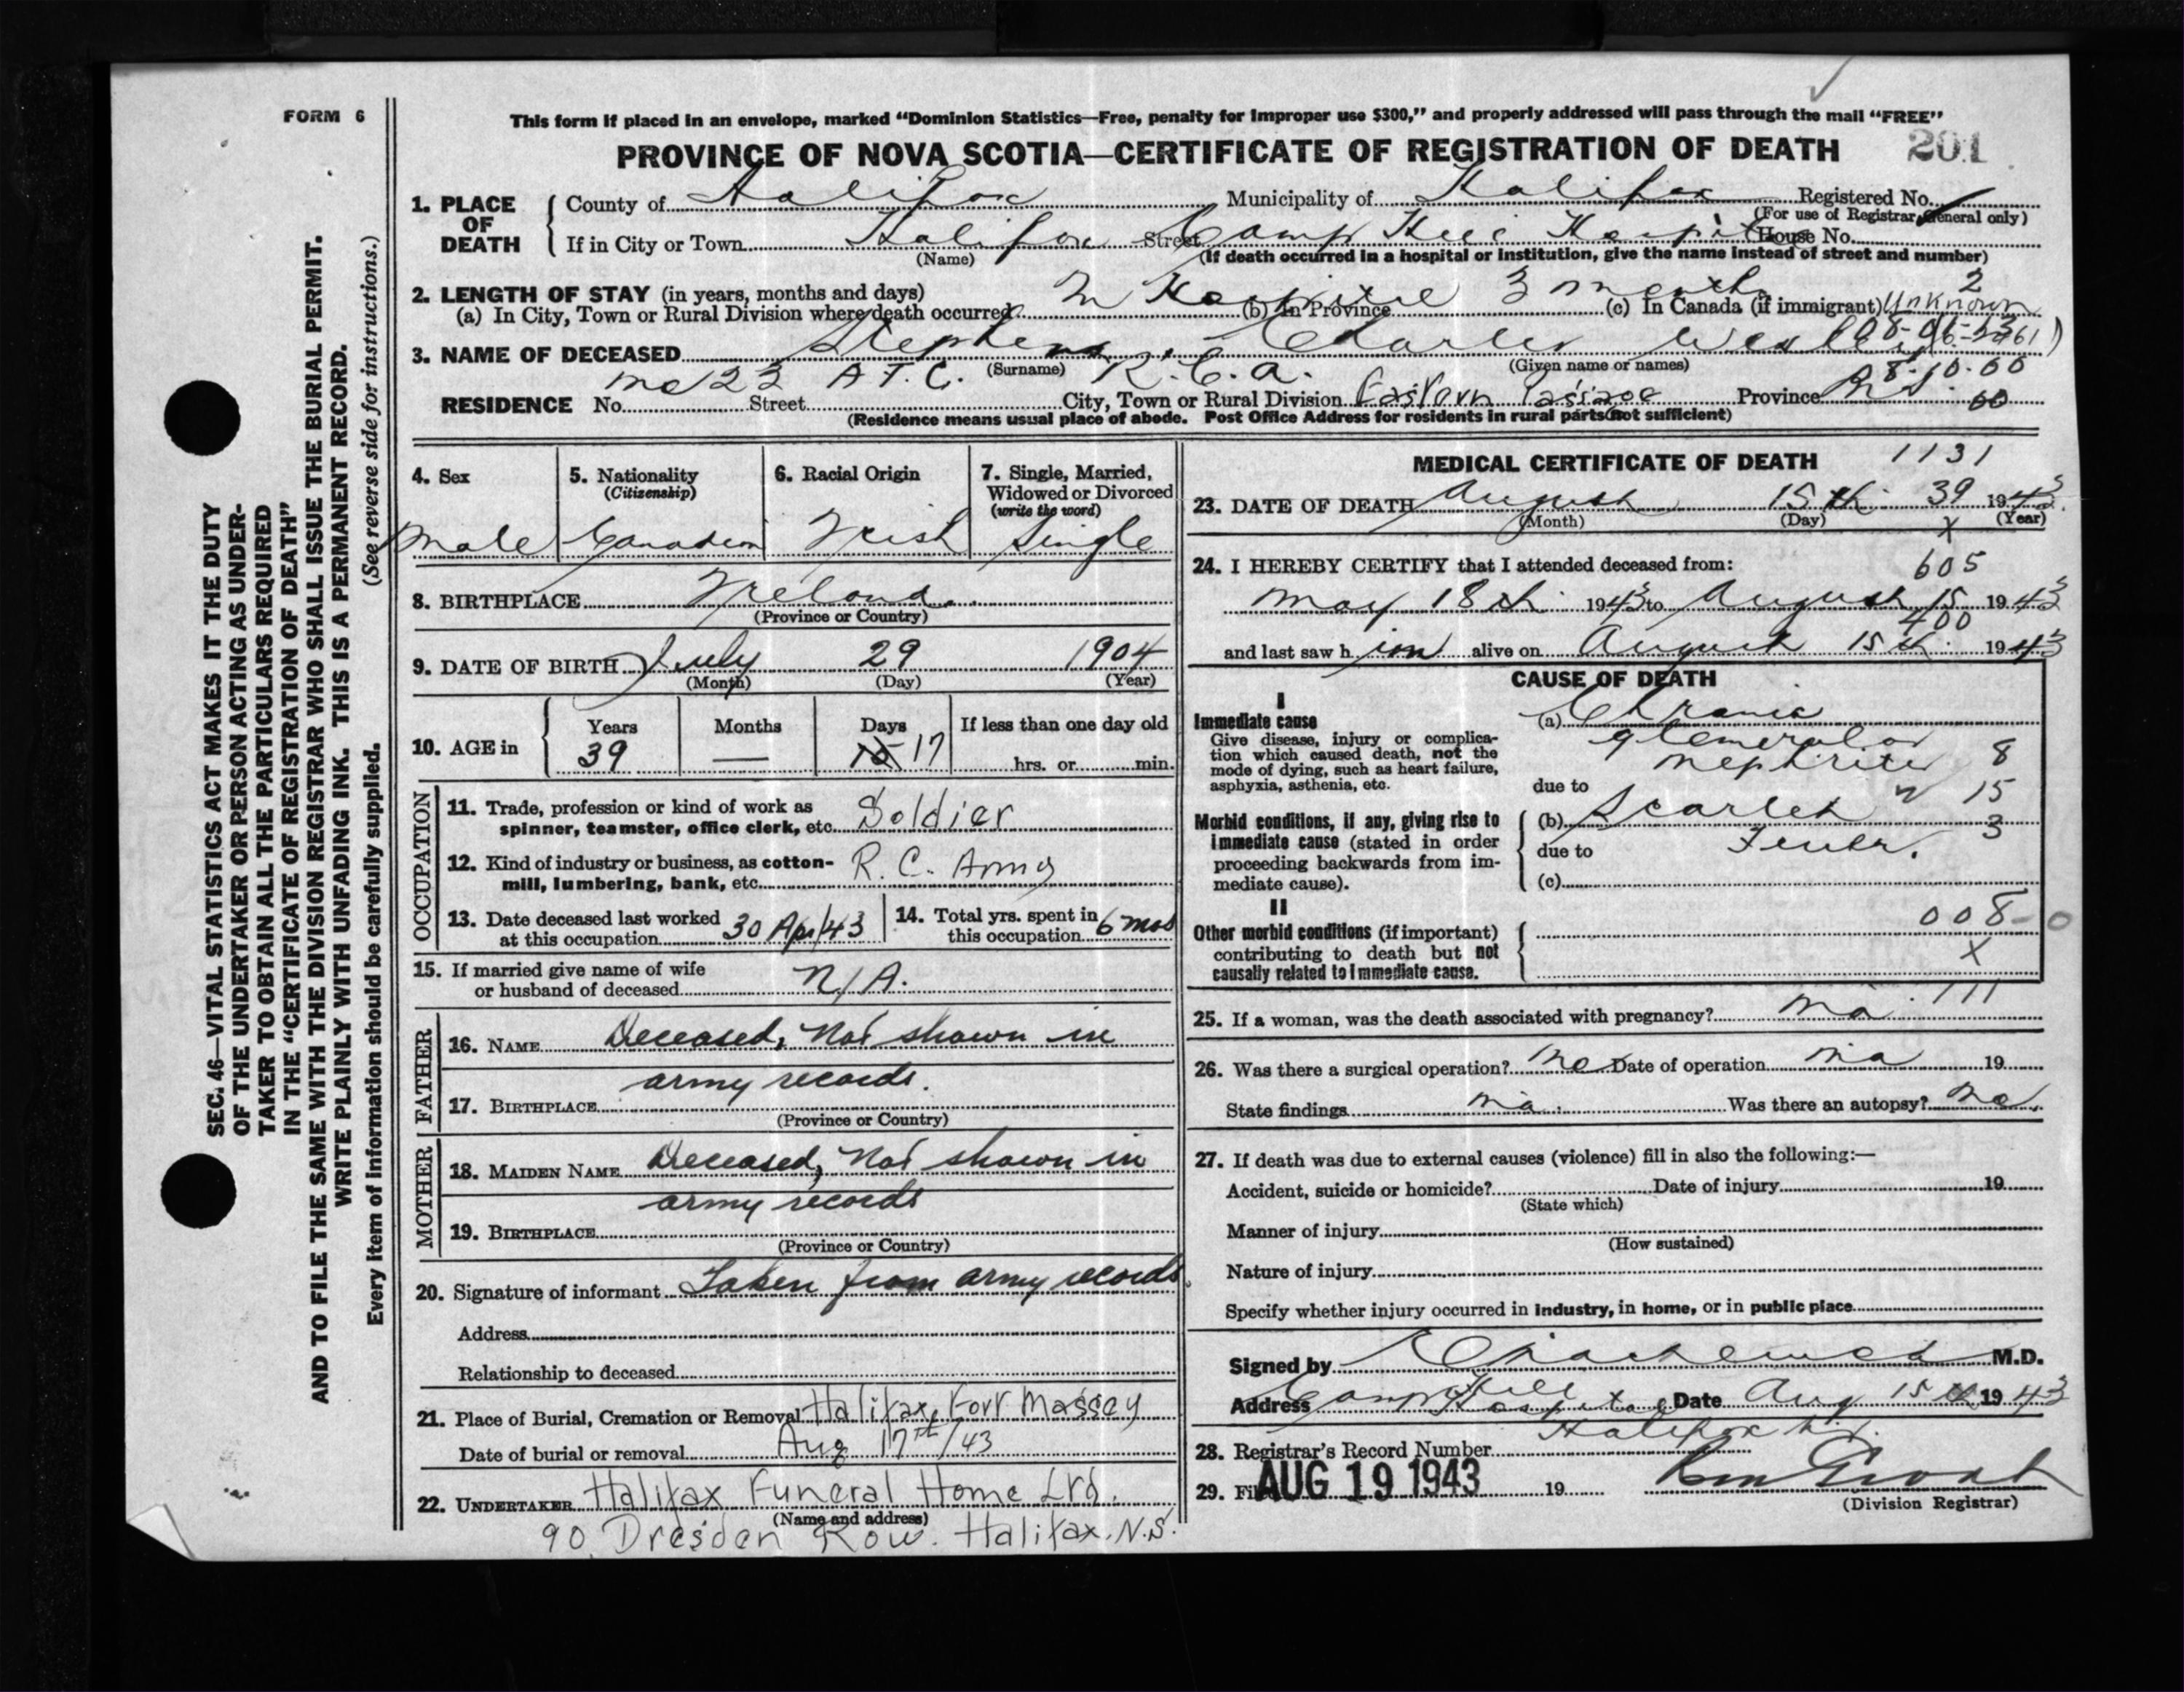 FORM 6
This form if placed in an envelope, marked “Dominion Statistics—Free, penalty for improper use $300,” and properly addressed will pass through the mail “FREE”
PROVINCE OF NOVA SCOTIA—CERTIFICATE OF REGISTRATION OF DEATH 201
1. PLACE OF DEATH
County of Halifax Municipality of Halifax Registered No.
(For use of Registrar General only)
If in City or Town Halifax Street Camp Hill Hospital House No.
(Name) (If death occurred in a hospital or institution, give the name instead of street and number)
2. LENGTH OF STAY (in years, months and days) 2
(a) In City, Town or Rural Division where death occurred In Hospital 3 months (b) In Province (c) In Canada (if immigrant) Unknown
3. NAME OF DECEASED Stephens Charles
(Surname) (Given name or names)
23 A.T.C. R.C.A. 8-10-00
RESIDENCE No. Street City, Town or Rural Division Eastern Passage Province N.S. 60
(Residence means usual place of abode. Post Office Address for residents in rural parts not sufficient)
4. Sex
Male
5. Nationality
(Citizenship)
Canadian
6. Racial Origin
Irish
7. Single, Married,
Widowed or Divorced
(write the word)
Single
8. BIRTHPLACE Ireland.
(Province or Country)
9. DATE OF BIRTH July 29 1904
(Month) (Day) (Year)
10. AGE in
Years Months Days If less than one day old
39 — 15 17 hrs. or min.
OCCUPATION
11. Trade, profession or kind of work as
spinner, teamster, office clerk, etc. Soldier
12. Kind of industry or business, as cotton-
mill, lumbering, bank, etc. R. C. Army
13. Date deceased last worked
at this occupation 30 Apr/43
14. Total yrs. spent in
this occupation 6 mos
15. If married give name of wife
or husband of deceased N/A.
FATHER
16. NAME Deceased, Not shown in
army records.
17. BIRTHPLACE
(Province or Country)
MOTHER
18. MAIDEN NAME Deceased, Not shown in
army records
19. BIRTHPLACE
(Province or Country)
20. Signature of informant Taken from army records.
Address
Relationship to deceased
21. Place of Burial, Cremation or Removal Halifax, Fort Massey
Date of burial or removal Aug 17th/43
22. UNDERTAKER Halifax Funeral Home Ltd.
(Name and address)
90 Dresden Row. Halifax. N.S.
MEDICAL CERTIFICATE OF DEATH 1131
23. DATE OF DEATH August 15th 39 1943
(Month) (Day) X (Year)
24. I HEREBY CERTIFY that I attended deceased from: 605
May 18th 1943 to August 15 1943
400
and last saw h im alive on August 15th 1943
CAUSE OF DEATH
I
Immediate cause
Give disease, injury or complica-
tion which caused death, not the
mode of dying, such as heart failure,
asphyxia, asthenia, etc.
(a) Chronic
glomerular
nephritis 8
due to
Morbid conditions, if any, giving rise to
immediate cause (stated in order
proceeding backwards from im-
mediate cause).
(b) Scarlet 15
due to Fever. 3
(c)
II
Other morbid conditions (if important)
contributing to death but not
causally related to immediate cause.
008-0
X
111
25. If a woman, was the death associated with pregnancy? na
26. Was there a surgical operation? no Date of operation na 19
State findings na. Was there an autopsy? no.
27. If death was due to external causes (violence) fill in also the following:—
Accident, suicide or homicide? Date of injury 19
(State which)
Manner of injury
(How sustained)
Nature of injury
Specify whether injury occurred in industry, in home, or in public place
Signed by M.D.
Address Camp Hill Hospital Date Aug 15th 1943
Halifax N.S.
28. Registrar's Record Number
29. Fil AUG 19 1943 19
(Division Registrar)
SEC. 46—VITAL STATISTICS ACT MAKES IT THE DUTY
OF THE UNDERTAKER OR PERSON ACTING AS UNDER-
TAKER TO OBTAIN ALL THE PARTICULARS REQUIRED
IN THE “CERTIFICATE OF REGISTRATION OF DEATH”
AND TO FILE THE SAME WITH THE DIVISION REGISTRAR WHO SHALL ISSUE THE BURIAL PERMIT.
WRITE PLAINLY WITH UNFADING INK. THIS IS A PERMANENT RECORD.
Every item of information should be carefully supplied. (See reverse side for instructions.)